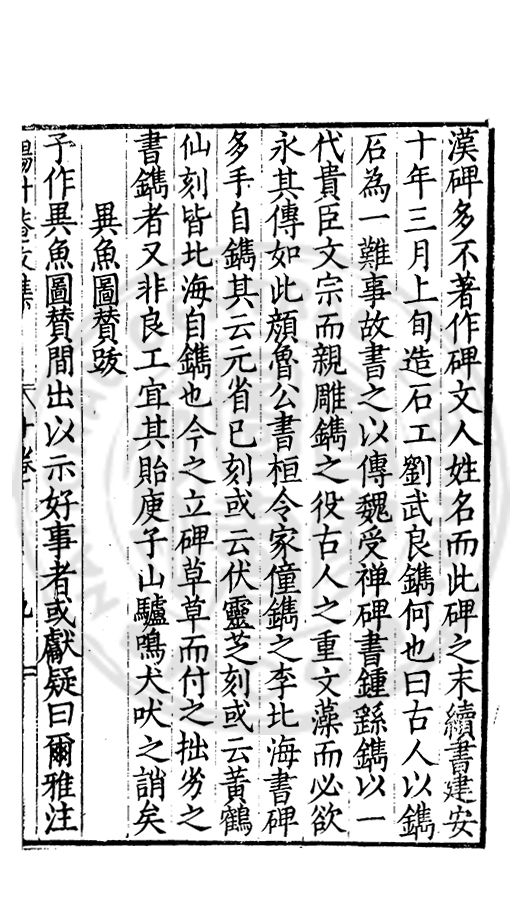 漢碑多不著作碑文人姓名而此碑之末續書建安
十年三月上旬造石工劉武良鐫何也曰古人以鐫
石為一難事故書之以傳魏受禅碑書鍾繇鐫以一
代貴臣文宗而親雕鐫之役古人之重文藻而必欲
永其傳如此顔魯公書桓令家僮鐫之李北海書碑
多手自鐫其云元省已刻或云伏靈芝刻或云黃鶴
仙刻皆北海自鐫也今之立碑草草而付之拙劣之
書鐫者又非良工宜其貽庾子山驢鳴犬吠之誚矣
異魚圖贊跋
予作異魚圖贊間出以示好事者或獻疑曰爾雅注